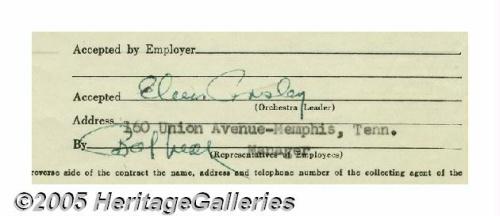 Accepted by Employer
Accepted Elvis Presley
(Orchestra Leader)
Address 160 Union Avenue-Memphis, Tenn.
By Bob Neal Manager
(Representatives of Employees)
reverse side of the contract the name, address and telephone number of the collecting agent of the
©2005 HeritageGalleries